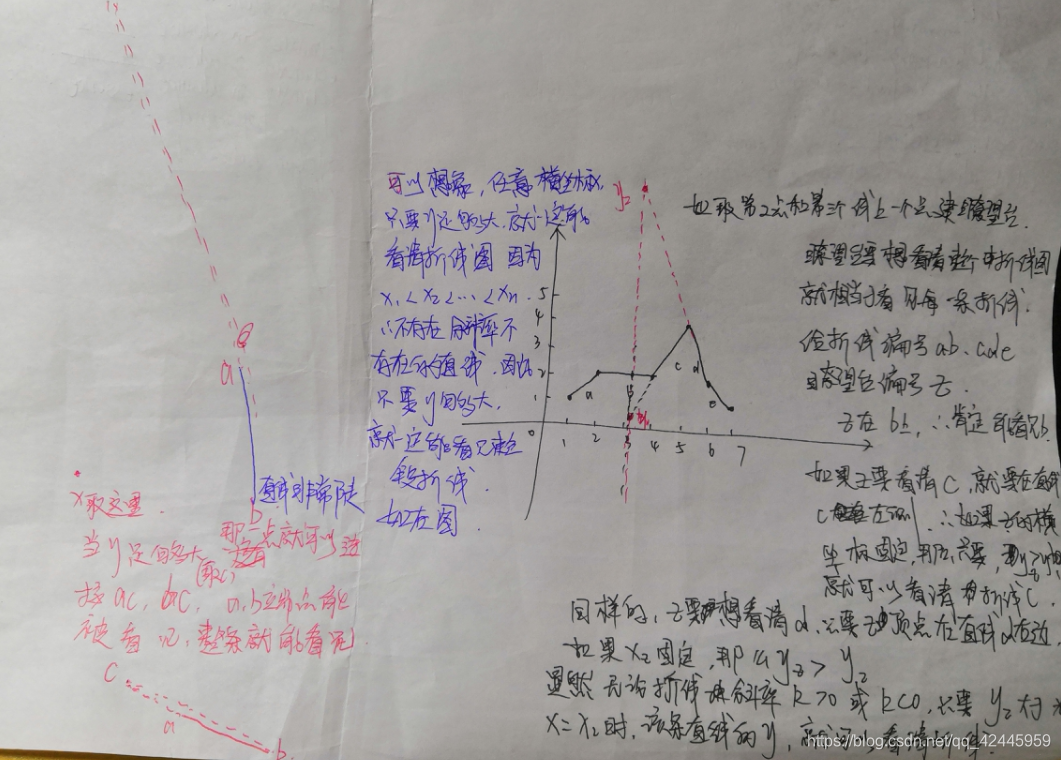 可以想象，任意横坐标x，
只要y足够大，就一定能
看清折线图 因为
x₁ < x₂ < … < xn .
∴不存在斜率不
存在的直线，因此
只要y够大，
就一定能看见整
段折线.
如左图.
a
b
直线非常陡
x取这里.
当y足够大，那一点就可以连
(取c)
接ac，bc，a,b立端点能
被看见，整条就能看见.
c
a
b
y₂
5
4
3
2
1
0
1 2 3 4 5 6 7
a
b
c
d
e
如取第2点和第三个线上一个点建立瞭望台.
瞭望台要想看清整个折线图
就相当于看见每一条折线.
给折线编号ab、cde
瞭望台编号z.
z在b上，∴肯定能看见b.
如果z要看清c，就要在直线
c左侧，∴如果z的横
坐标固定，那么只要
就可以看清折线c.
同样的，z要想看清d，只要z顶点在直线d右边，
如果x₂固定，那么y_z > y₂
显然 无论折线斜率k>0或k<0，只要y_z大于
x=x₂时，该条直线的y，就可以看清
https://blog.csdn.net/qq_42445959